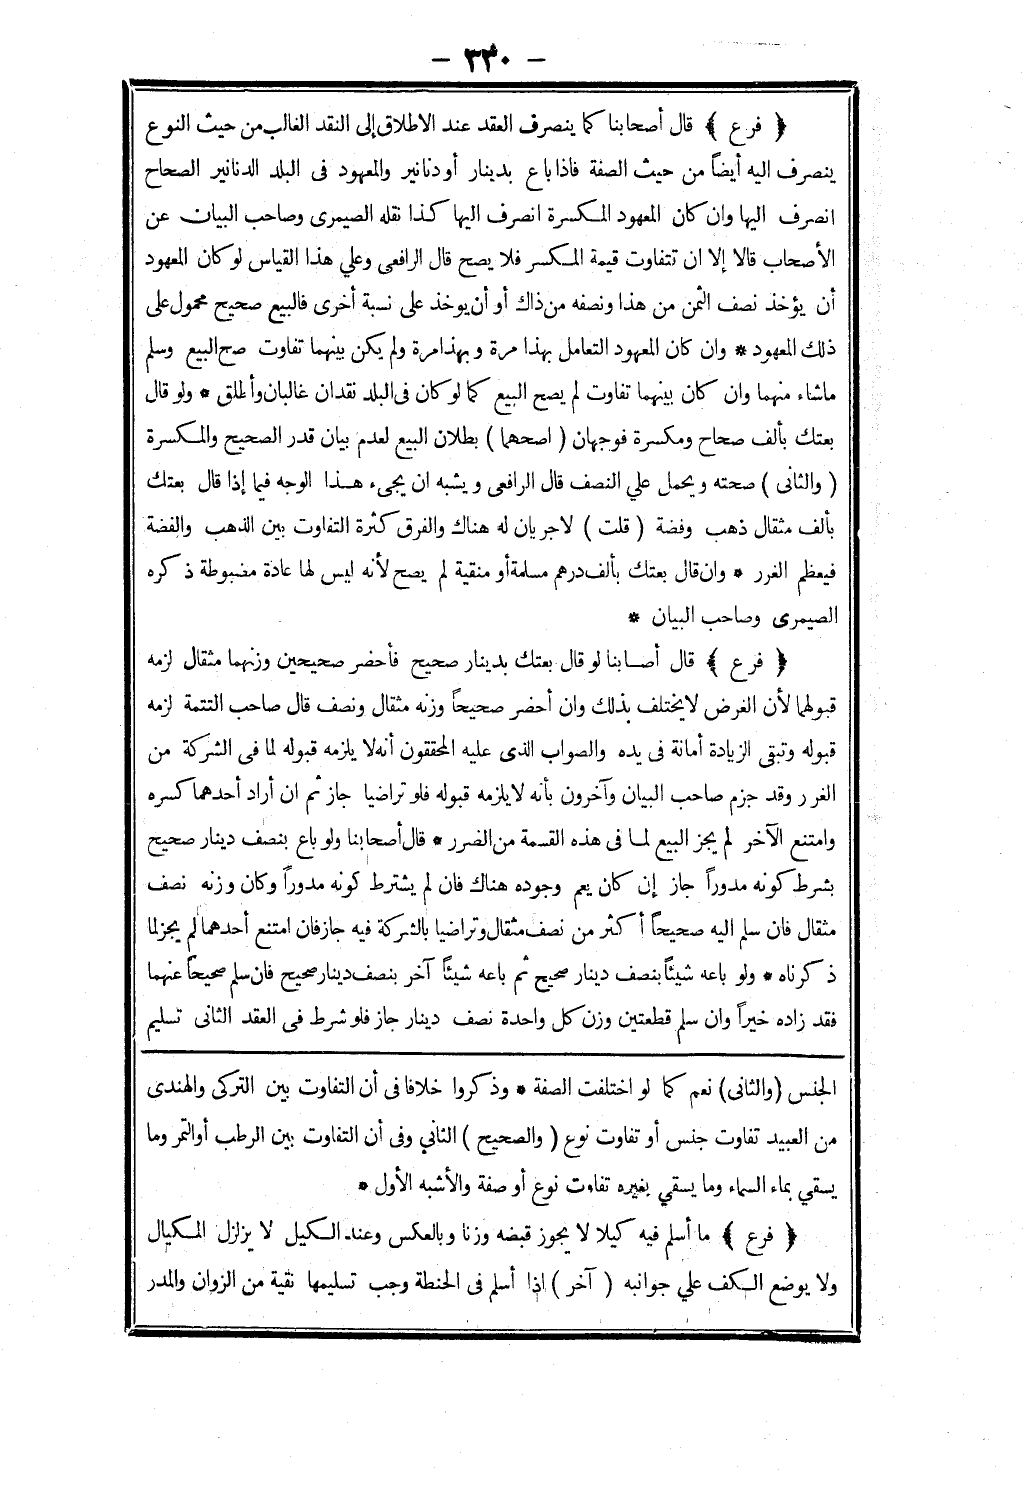 - ٣٣٠ -
﴿ فرع ﴾ قال أصحابنا كما ينصرف العقد عند الاطلاق إلى النقد الغالب من حيث النوع
ينصرف اليه أيضاً من حيث الصفة فاذا باع بدينار أو دنانير والمعهود فى البلد الدنانير الصحاح
انصرف اليها وان كان المعهود المكسرة انصرف اليها كذا نقله الصيمرى وصاحب البيان عن
الأصحاب قالا إلا ان تتفاوت قيمة المكسر فلا يصح قال الرافعى وعلي هذا القياس لو كان المعهود
أن يؤخذ نصف الثمن من هذا ونصفه من ذاك أو أن يوخذ على نسبة أخرى فالبيع صحيح محمول على
ذلك المعهود * وان كان المعهود التعامل بهذا مرة وبهذا مرة ولم يكن بينهما تفاوت صح البيع وسلم
ماشاء منهما وان كان بينهما تفاوت لم يصح البيع كما لو كان فى البلد نقدان غالبان وأطلق * ولو قال
بعتك بألف صحاح ومكسرة فوجهان ( اصحهما ) بطلان البيع لعدم بيان قدر الصحيح والمكسرة
( والثانى ) صحته ويحمل علي النصف قال الرافعى ويشبه ان يجىء هذا الوجه فيما إذا قال بعتك
بألف مثقال ذهب وفضة ( قلت ) لا جريان له هناك والفرق كثرة التفاوت بين الذهب والفضة
فيعظم الغرر * وان قال بعتك بألف درهم مسلمة أو منقية لم يصح لأنه ليس لها عادة مضبوطة ذكره
الصيمرى وصاحب البيان *
﴿ فرع ﴾ قال أصابنا لو قال بعتك بدينار صحيح فأحضر صحيحين وزنهما مثقال لزمه
قبولهما لأن الغرض لا يختلف بذلك وان أحضر صحيحاً وزنه مثقال ونصف قال صاحب التتمة لزمه
قبوله وتبقى الزيادة أمانة فى يده والصواب الذى عليه المحققون أنه لا يلزمه قبوله لما فى الشركة من
الغرر وقد جزم صاحب البيان وآخرون بأنه لا يلزمه قبوله فلو تراضيا جاز ثم ان أراد أحدهما كسره
وامتنع الآخر لم يجز البيع لما فى هذه القسمة من الضرر * قال أصحابنا ولو باع بنصف دينار صحيح
بشرط كونه مدوراً جاز إن كان يعم وجوده هناك فان لم يشترط كونه مدوراً وكان وزنه نصف
مثقال فان سلم اليه صحيحاً أكثر من نصف مثقال وتراضيا بالشركة فيه جاز فان امتنع أحدهما لم يجز لما
ذكرناه * ولو باعه شيئاً بنصف دينار صحيح ثم باعه شيئاً آخر بنصف دينار صحيح فان سلم صحيحاً عنهما
فقد زاده خيراً وان سلم قطعتين وزن كل واحدة نصف دينار جاز فلو شرط فى العقد الثانى تسليم
الجنس (والثانى) نعم كما لو اختلفت الصفة * وذكروا خلافا فى أن التفاوت بين التركى والهندى
من العبيد تفاوت جنس أو تفاوت نوع ( والصحيح ) الثاني وفى أن التفاوت بين الرطب أو التمر وما
يسقي بماء السماء وما يسقي بغيره تفاوت نوع أو صفة والأشبه الأول *
﴿ فرع ﴾ ما أسلم فيه كيلا لا يجوز قبضه وزنا وبالعكس وعند الكيل لا يزلزل المكيال
ولا يوضع الكف علي جوانبه ( آخر ) اذا أسلم فى الحنطة وجب تسليمها نقية من الزوان والمدر